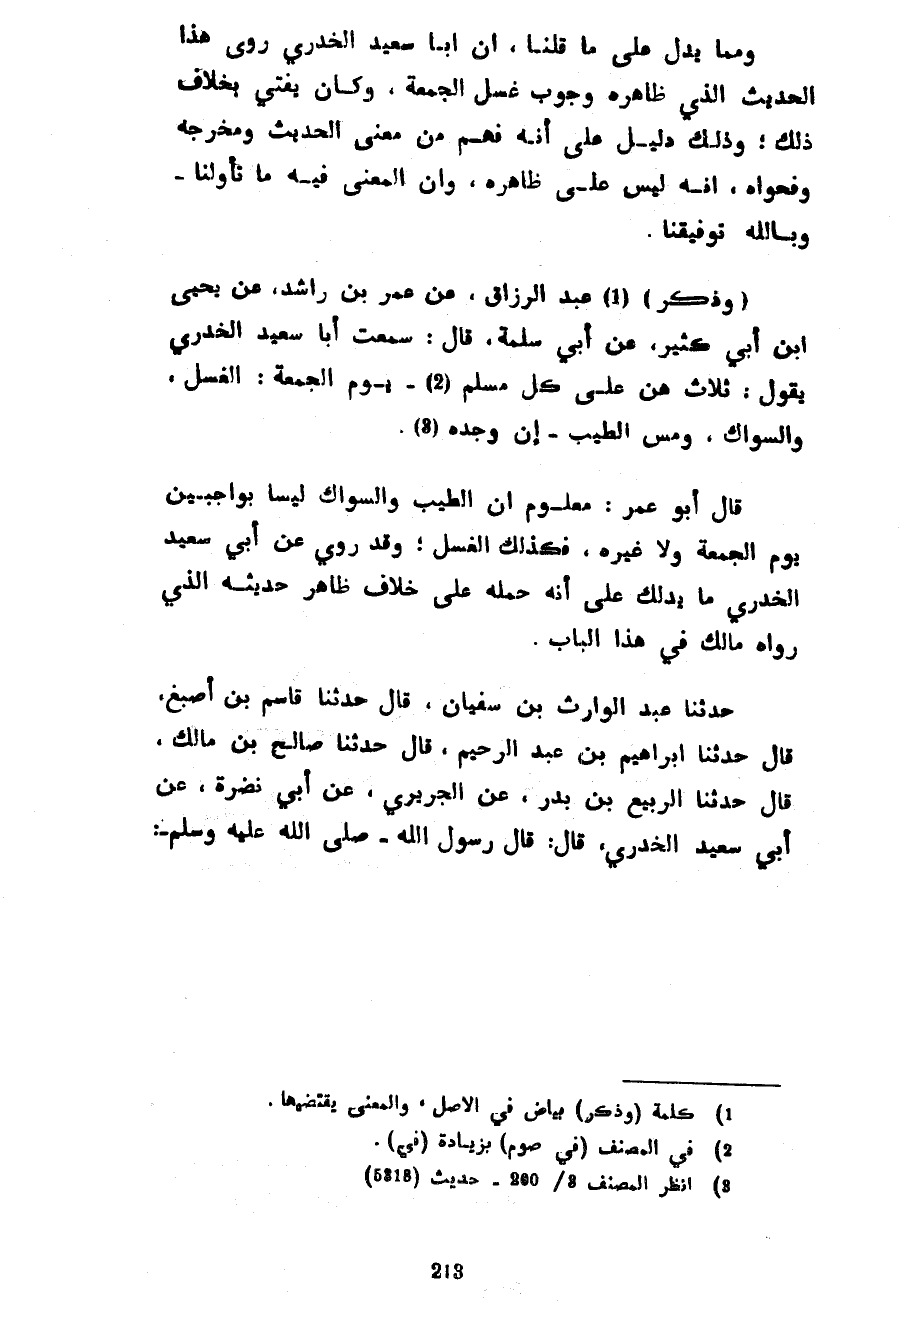 ومما يدل على ما قلنا ، ان ابا سعيد الخدري روى هذا
الحديث الذي ظاهره وجوب غسل الجمعة ، وكان يفتي بخلاف
ذلك ؛ وذلك دليل على أنه فهم من معنى الحديث ومخرجه
وفحواه ، انه ليس على ظاهره ، وان المعنى فيه ما تأولنا -
وبالله توفيقنا .
( وذكر ) (1) عبد الرزاق ، عن عمر بن راشد، عن يحيى
ابن أبي كثير، عن أبي سلمة، قال : سمعت أبا سعيد الخدري
يقول : ثلاث هن على كل مسلم (2) - يوم الجمعة : الغسل ،
والسواك ، ومس الطيب - إن وجده (3) .
قال أبو عمر : معلوم ان الطيب والسواك ليسا بواجبين
يوم الجمعة ولا غيره ، فكذلك الغسل ؛ وقد روي عن أبي سعيد
الخدري ما يدلك على أنه حمله على خلاف ظاهر حديثه الذي
رواه مالك في هذا الباب .
حدثنا عبد الوارث بن سفيان ، قال حدثنا قاسم بن أصبغ،
قال حدثنا ابراهيم بن عبد الرحيم ، قال حدثنا صالح بن مالك ،
قال حدثنا الربيع بن بدر ، عن الجريري ، عن أبي نضرة ، عن
أبي سعيد الخدري، قال: قال رسول الله - صلى الله عليه وسلم-:
1) كلمة (وذكر) بياض في الاصل ، والمعنى يقتضيها .
2) في المصنف (في صوم) بزيادة (في) .
3) انظر المصنف 3/ 200 - حديث (5318)
213